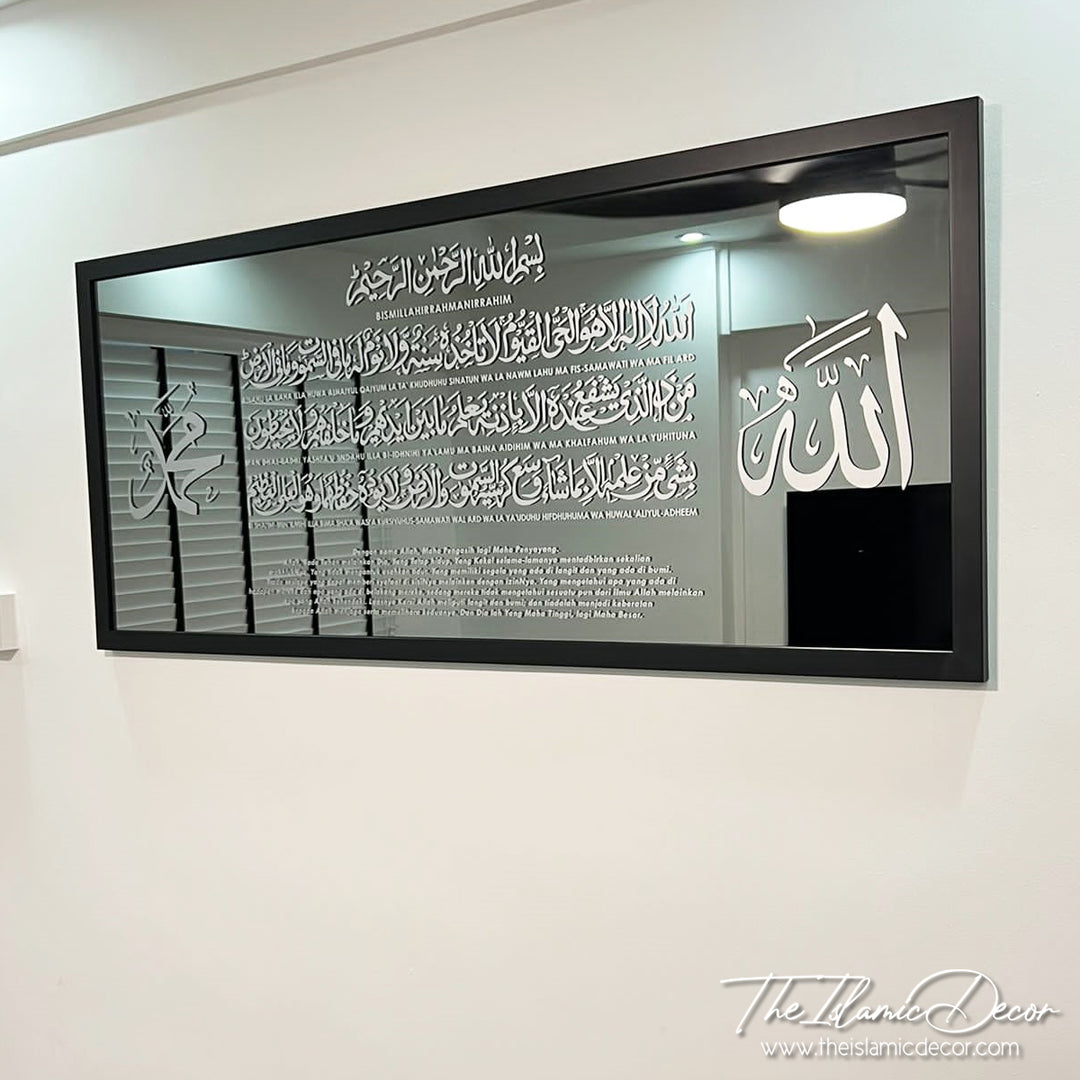 بسم الله الرحمن الرحيم
BISMILLAHIRRAHMANIRRAHIM
الله لا إله إلا هو الحي القيوم لا تأخذه سنة ولا نوم له ما في السموت وما في الأرض
LA ILAHA ILLA HUWA ALHAIYUL QAIYUM LA TA' KHUDHUHU SINATUN WA LA NAWM LAHU MA FIS-SAMAWATI WA MA FIL ARD
من ذا الذي يشفع عنده إلا بإذنه يعلم ما بين أيديهم وما خلفهم ولا يحيطون
YASHFA'U 'INDAHU ILLA BI-IDHNIHI YA'LAMU MA BAINA AIDIHIM WA MA KHALFAHUM WA LA YUHITUNA
بشيء من علمه إلا بما شاء وسع كرسيه السموت والأرض ولا يؤده حفظهما وهو العلي العظيم
ILLA BIMA SHA'A WASI'A KURSIYUHUS-SAMAWATI WAL ARD WA LA YA'UDUHU HIFDHUHUMA WA HUWAL 'ALIYUL-ADHEEM
الله
محمد
Dengan nama Allah, Maha Pengasih lagi Maha Penyayang.
Tiada Tuhan melainkan Dia, Yang Tetap hidup, Yang Kekal selama-lamanya mentadbirkan sekalian
Yang tidak mengantuk usahkan tidur. Yang memiliki segala yang ada di langit dan yang ada di bumi.
Tiada sesiapa yang dapat memberi syafaat di sisiNya melainkan dengan izinNya. Yang mengetahui apa yang ada di
yang ada di belakang mereka, sedang mereka tidak mengetahui sesuatu pun dari ilmu Allah melainkan
apa yang Allah kehendaki. Luasnya Kursi Allah meliputi langit dan bumi; dan tiadalah menjadi keberatan
kepada Allah menjaga serta memelihara keduanya. Dan Dia lah Yang Maha Tinggi, lagi Maha Besar.
The Islamic Decor
www.theislamicdecor.com